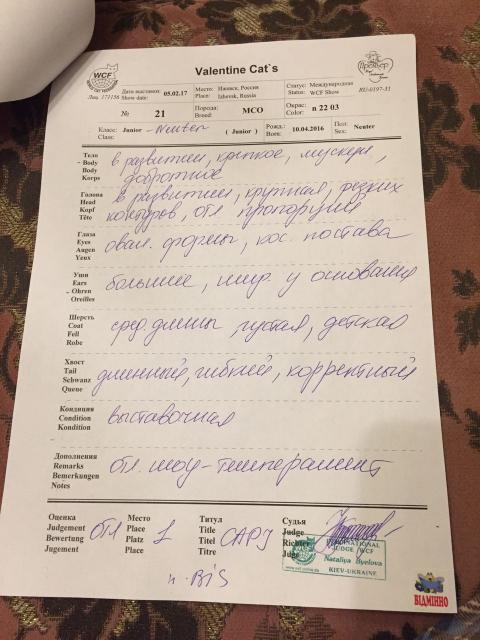 Valentine Cat`s
WCF
Лиц. 171156
Дата выставки: 05.02.17
Show date:
Место: Ижевск, Россия
Place: Izhevsk, Russia
Статус: Международная
Status: WCF Show
RU-0197-31
№ 21
Порода: MCO
Breed:
Окрас: n 22 03
Color:
Класс: Junior - Neuter ( Junior )
Class:
Рожд.: 10.04.2016
Born:
Пол: Neuter
Sex:
Тело
- Body
Body
Korps
в развитии, крепкое, мускул.,
добротное
Голова
Head
Kopf
Tête
в развитии, крупная, резких
контуров, отл пропорции
Глаза
Eyes
Augen
Yeux
овал. формы, кос. постава
Уши
Ears
- Ohren
Oreilles
большие, шир. у основания
Шерсть
Coat
Fell
Robe
сред. длины, густая, детская
Хвост
Tail
Schwanz
Queue
длинный, гибкий, корректный
Кондиция
Condition
Kondition
выставочная
Дополнения
Remarks
Bemerkungen
Notes
отл. шоу-темперамент
Оценка
Judgement
Bewertung
Jugement
отл
Место
Place
Platz
Place
1
Титул
Title
Titel
Titre
CAPJ
Судья
Judge
Richter
Juge
INTERNATIONAL
JUDGE WCF
Nataliya Byelova
KIEV-UKRAINE
н. BiS
ВІДМІННО